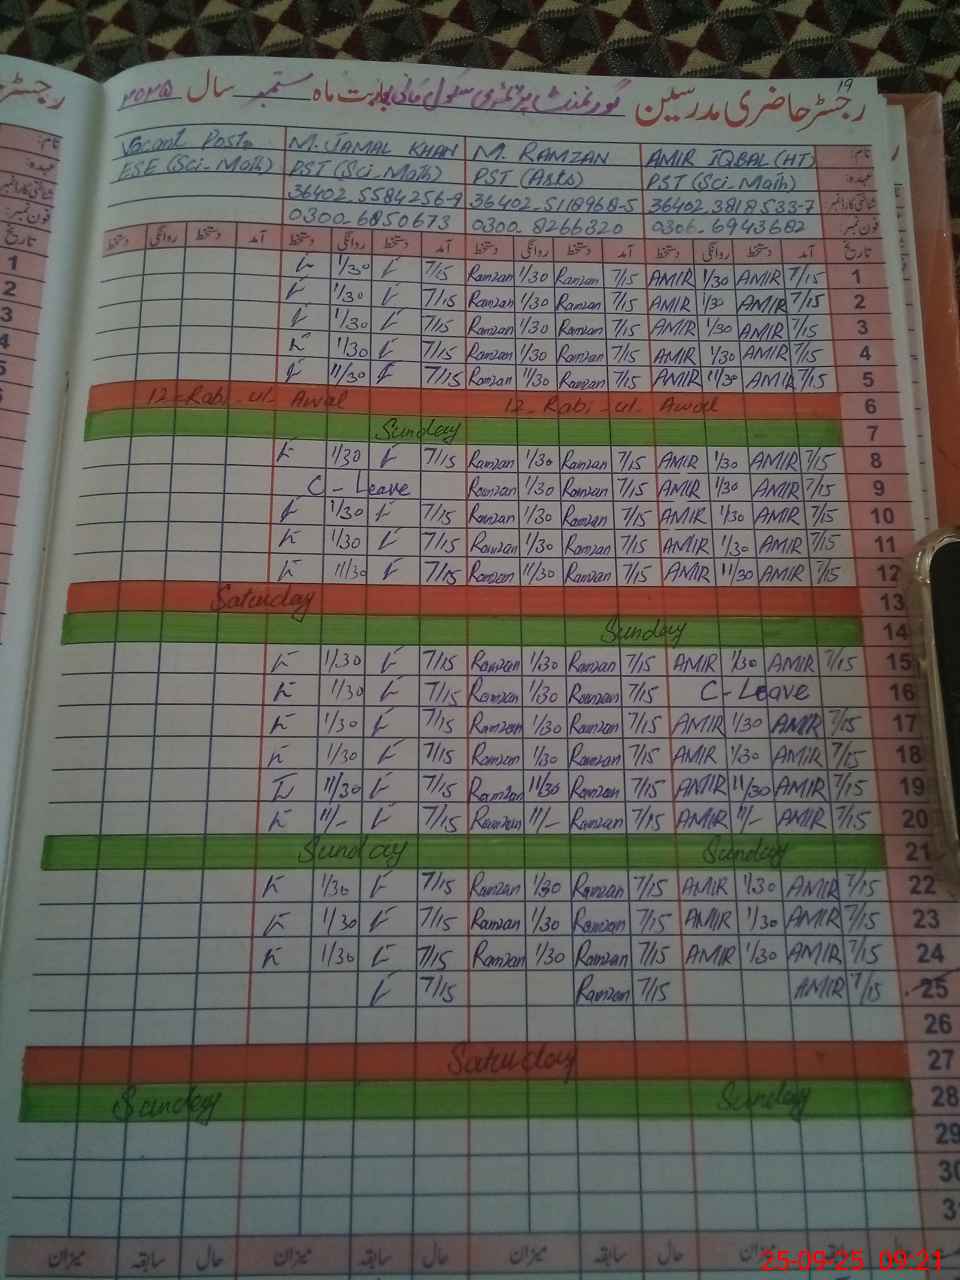 ۱۹
رجسٹر حاضری مدرسین گورنمنٹ پرائمری سکول بابت ماہ ستمبر سال ۲۰۲۵
نام: AMIR IQBAL (HT) M. RAMZAN M. JAMAL KHAN Vacant Post
عہدہ: PST (Sci-Math) PST (Arts) PST (Sci-Math) ESE (Sci-Math)
شناختی کارڈ نمبر 36402-3818533-7 36402-5118968-5 36402-5584256-9
فون نمبر: 0306-6943682 0300-8266320 0300-6850673
تاریخ آمد دستخط روانگی دستخط آمد دستخط روانگی دستخط آمد دستخط روانگی دستخط آمد دستخط روانگی دستخط
1/30 7/15 Ramzan 1/30 Ramzan 7/15 AMIR 1/30 AMIR 7/15 1
1/30 7/15 Ramzan 1/30 Ramzan 7/15 AMIR 1/30 AMIR 7/15 2
1/30 7/15 Ramzan 1/30 Ramzan 7/15 AMIR 1/30 AMIR 7/15 3
1/30 7/15 Ramzan 1/30 Ramzan 7/15 AMIR 1/30 AMIR 7/15 4
11/30 7/15 Ramzan 11/30 Ramzan 7/15 AMIR 11/30 AMIR 7/15 5
12-Rabi-ul-Awal 12-Rabi-ul-Awal 6
Sunday 7
1/30 7/15 Ramzan 1/30 Ramzan 7/15 AMIR 1/30 AMIR 7/15 8
C-Leave Ramzan 1/30 Ramzan 7/15 AMIR 1/30 AMIR 7/15 9
1/30 7/15 Ramzan 1/30 Ramzan 7/15 AMIR 1/30 AMIR 7/15 10
1/30 7/15 Ramzan 1/30 Ramzan 7/15 AMIR 1/30 AMIR 7/15 11
11/30 7/15 Ramzan 11/30 Ramzan 7/15 AMIR 11/30 AMIR 7/15 12
Saturday 13
Sunday 14
1/30 7/15 Ramzan 1/30 Ramzan 7/15 AMIR 1/30 AMIR 7/15 15
1/30 7/15 Ramzan 1/30 Ramzan 7/15 C-Leave 16
1/30 7/15 Ramzan 1/30 Ramzan 7/15 AMIR 1/30 AMIR 7/15 17
1/30 7/15 Ramzan 1/30 Ramzan 7/15 AMIR 1/30 AMIR 7/15 18
11/30 7/15 Ramzan 11/30 Ramzan 7/15 AMIR 11/30 AMIR 7/15 19
11/- 7/15 Ramzan 11/- Ramzan 7/15 AMIR 11/- AMIR 7/15 20
Sunday Sunday 21
1/30 7/15 Ramzan 1/30 Ramzan 7/15 AMIR 1/30 AMIR 7/15 22
1/30 7/15 Ramzan 1/30 Ramzan 7/15 AMIR 1/30 AMIR 7/15 23
1/30 7/15 Ramzan 1/30 Ramzan 7/15 AMIR 1/30 AMIR 7/15 24
7/15 Ramzan 7/15 AMIR 7/15 25
26
Saturday 27
Sunday Sunday 28
29
30
31
حال سابقہ میزان حال سابقہ میزان حال سابقہ میزان
25-09-25 09:21